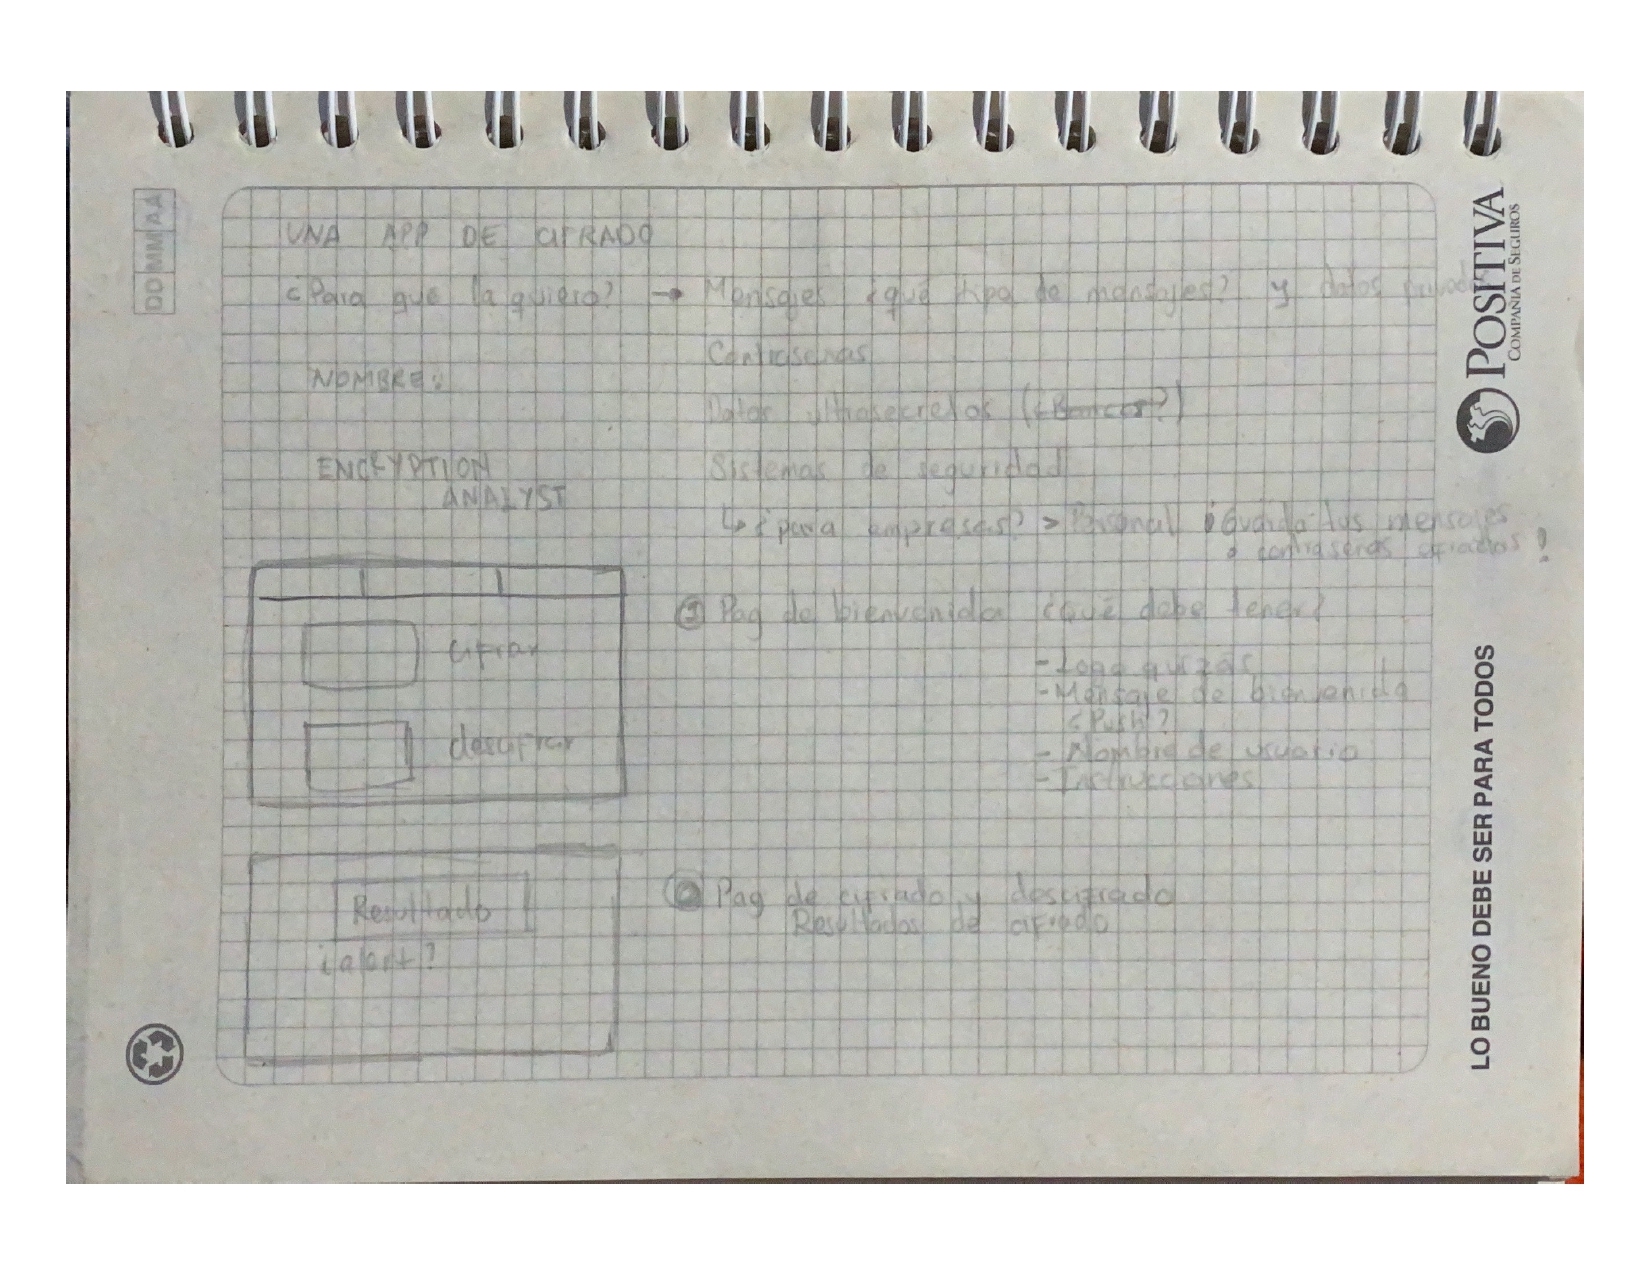 DD MM AA
UNA APP DE CIFRADO
¿Para que la quiero? → Mensajes ¿qué tipo de mensajes? y datos privados
Contraseñas
NOMBRE:
Datos ultrasecretos (¿Bancos?)
ENCRYPTION
ANALYST
Sistemas de seguridad
↳ ¿para empresas? > Personal ¡Guarda tus mensajes
o contraseñas cifradas!
cifrar
descifrar
① Pag de bienvenida ¿qué debe tener?
- Logo quizás
- Mensaje de bienvenida
¿Push?
- Nombre de usuario
- Instrucciones
Resultado
¿alert?
② Pag de cifrado y descifrado
Resultados de cifrado
POSITIVA
COMPAÑÍA DE SEGUROS
LO BUENO DEBE SER PARA TODOS